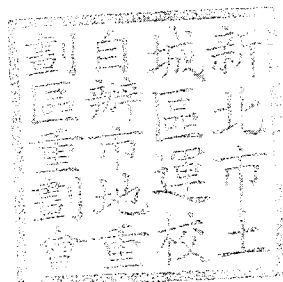 新北市土
城區運校
自辦市地重
劃區重劃會